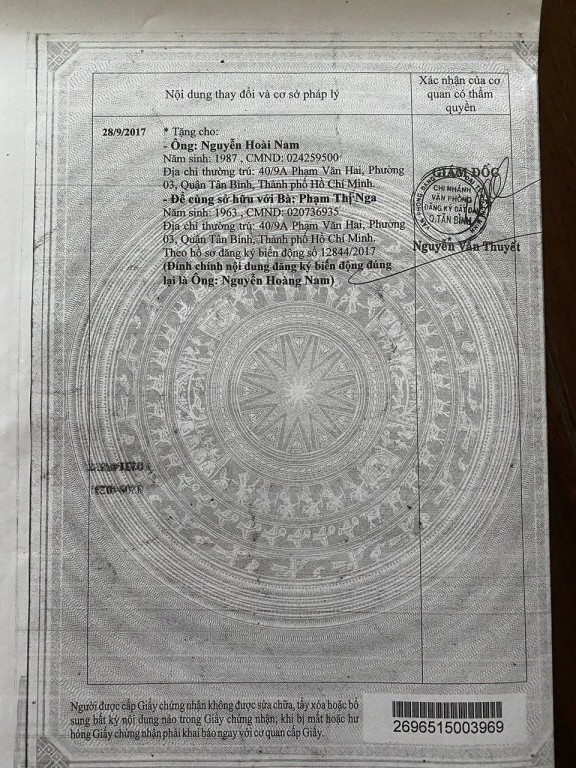 Nội dung thay đổi và cơ sở pháp lý
Xác nhận của cơ
quan có thẩm
quyền
28/9/2017
* Tặng cho:
- Ông: Nguyễn Hoài Nam
Năm sinh: 1987 , CMND: 024259500
Địa chỉ thường trú: 40/9A Phạm Văn Hai, Phường
03, Quận Tân Bình, Thành phố Hồ Chí Minh.
- Để cùng sở hữu với Bà: Phạm Thị Nga
Năm sinh: 1963 , CMND: 020736935
Địa chỉ thường trú: 40/9A Phạm Văn Hai, Phường
03, Quận Tân Bình, Thành phố Hồ Chí Minh.
Theo hồ sơ đăng ký biến động số 12844/2017
(Đính chính nội dung đăng ký biến động đúng
lại là Ông: Nguyễn Hoàng Nam)
GIÁM ĐỐC
CHI NHÁNH
VĂN PHÒNG
ĐĂNG KÝ ĐẤT ĐAI
Q.TÂN BÌNH
Nguyễn Văn Thuyết
Người được cấp Giấy chứng nhận không được sửa chữa, tẩy xóa hoặc bổ
sung bất kỳ nội dung nào trong Giấy chứng nhận; khi bị mất hoặc hư
hỏng Giấy chứng nhận phải khai báo ngay với cơ quan cấp Giấy.
2696515003969